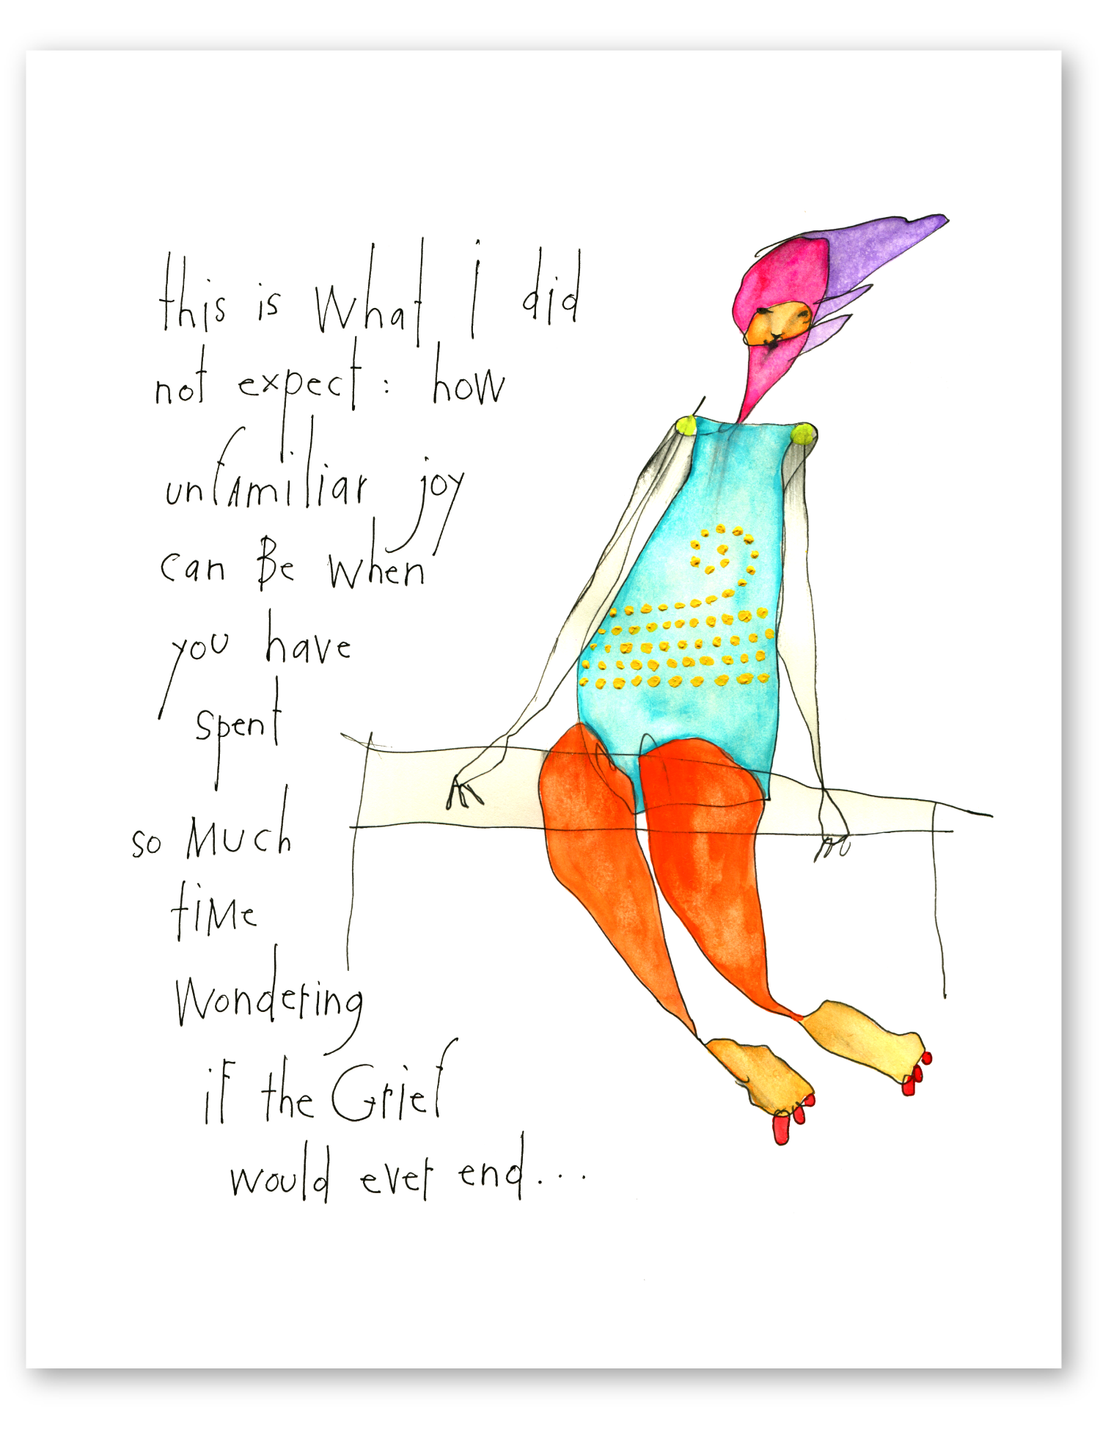 this is what I did
not expect: how
unfamiliar joy
can Be when
you have
spent
so Much
tiMe
Wondering
if the Grief
would ever end...